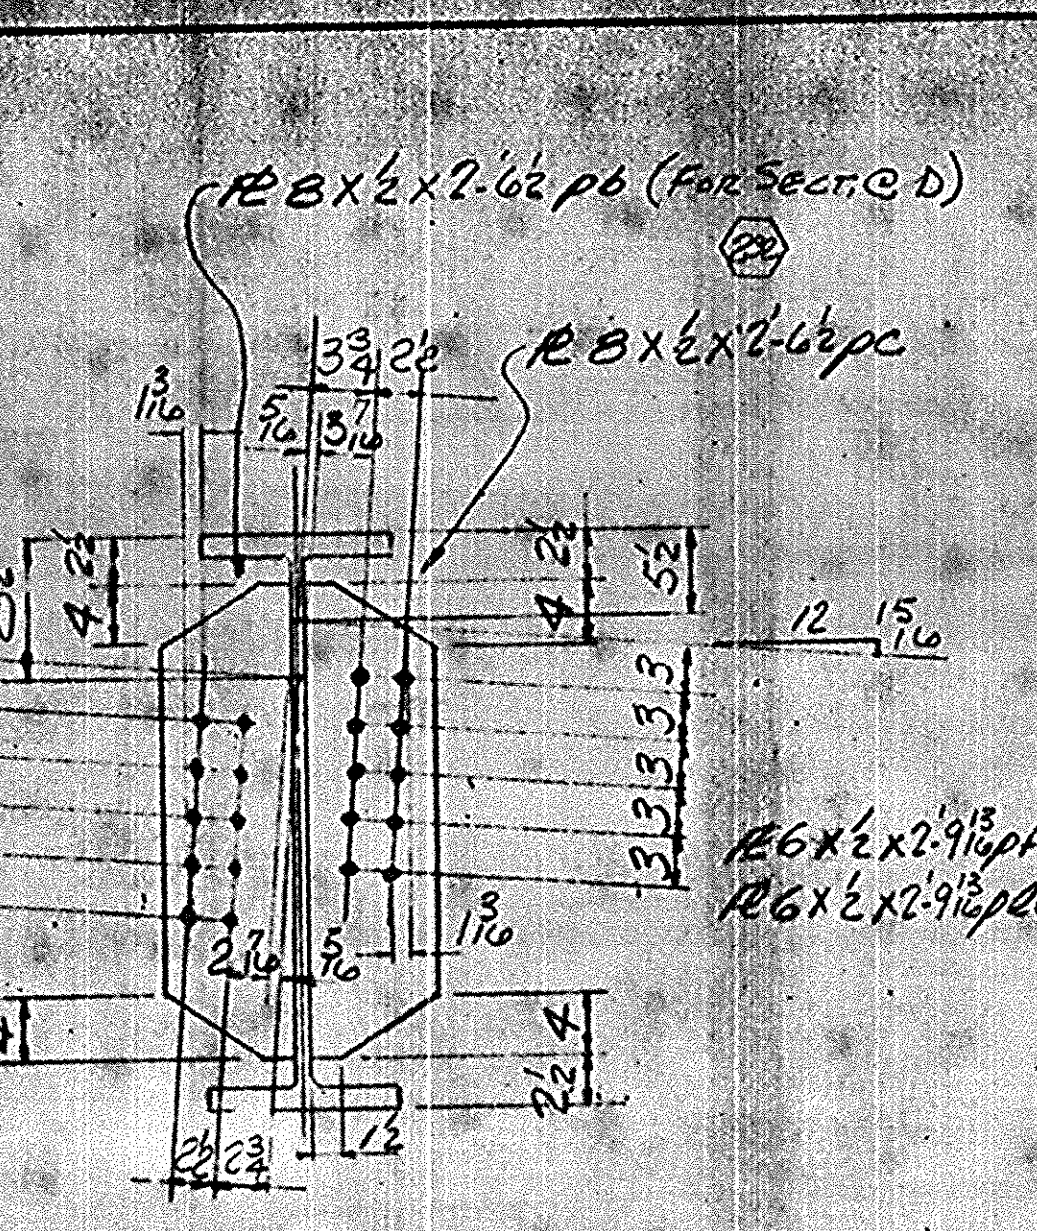 PL 8 X 1/2 X 2'-6 1/2 pb (FOR SECT. @ D)
PL 8 X 1/2 X 2'-6 1/2 pc
3 3/4 2 1/2
1 3/16
5/16 3 7/16
2 1/2
4
2 1/2
4
5 1/2
12 15/16
3
3
3
3
3
PL 6 X 1/2 X 2'-9 13/16
PL 6 X 1/2 X 2'-9 13/16
1 3/16
2 7/16 5/16
4
2 1/2
1 1/2
2 1/2 2 3/4